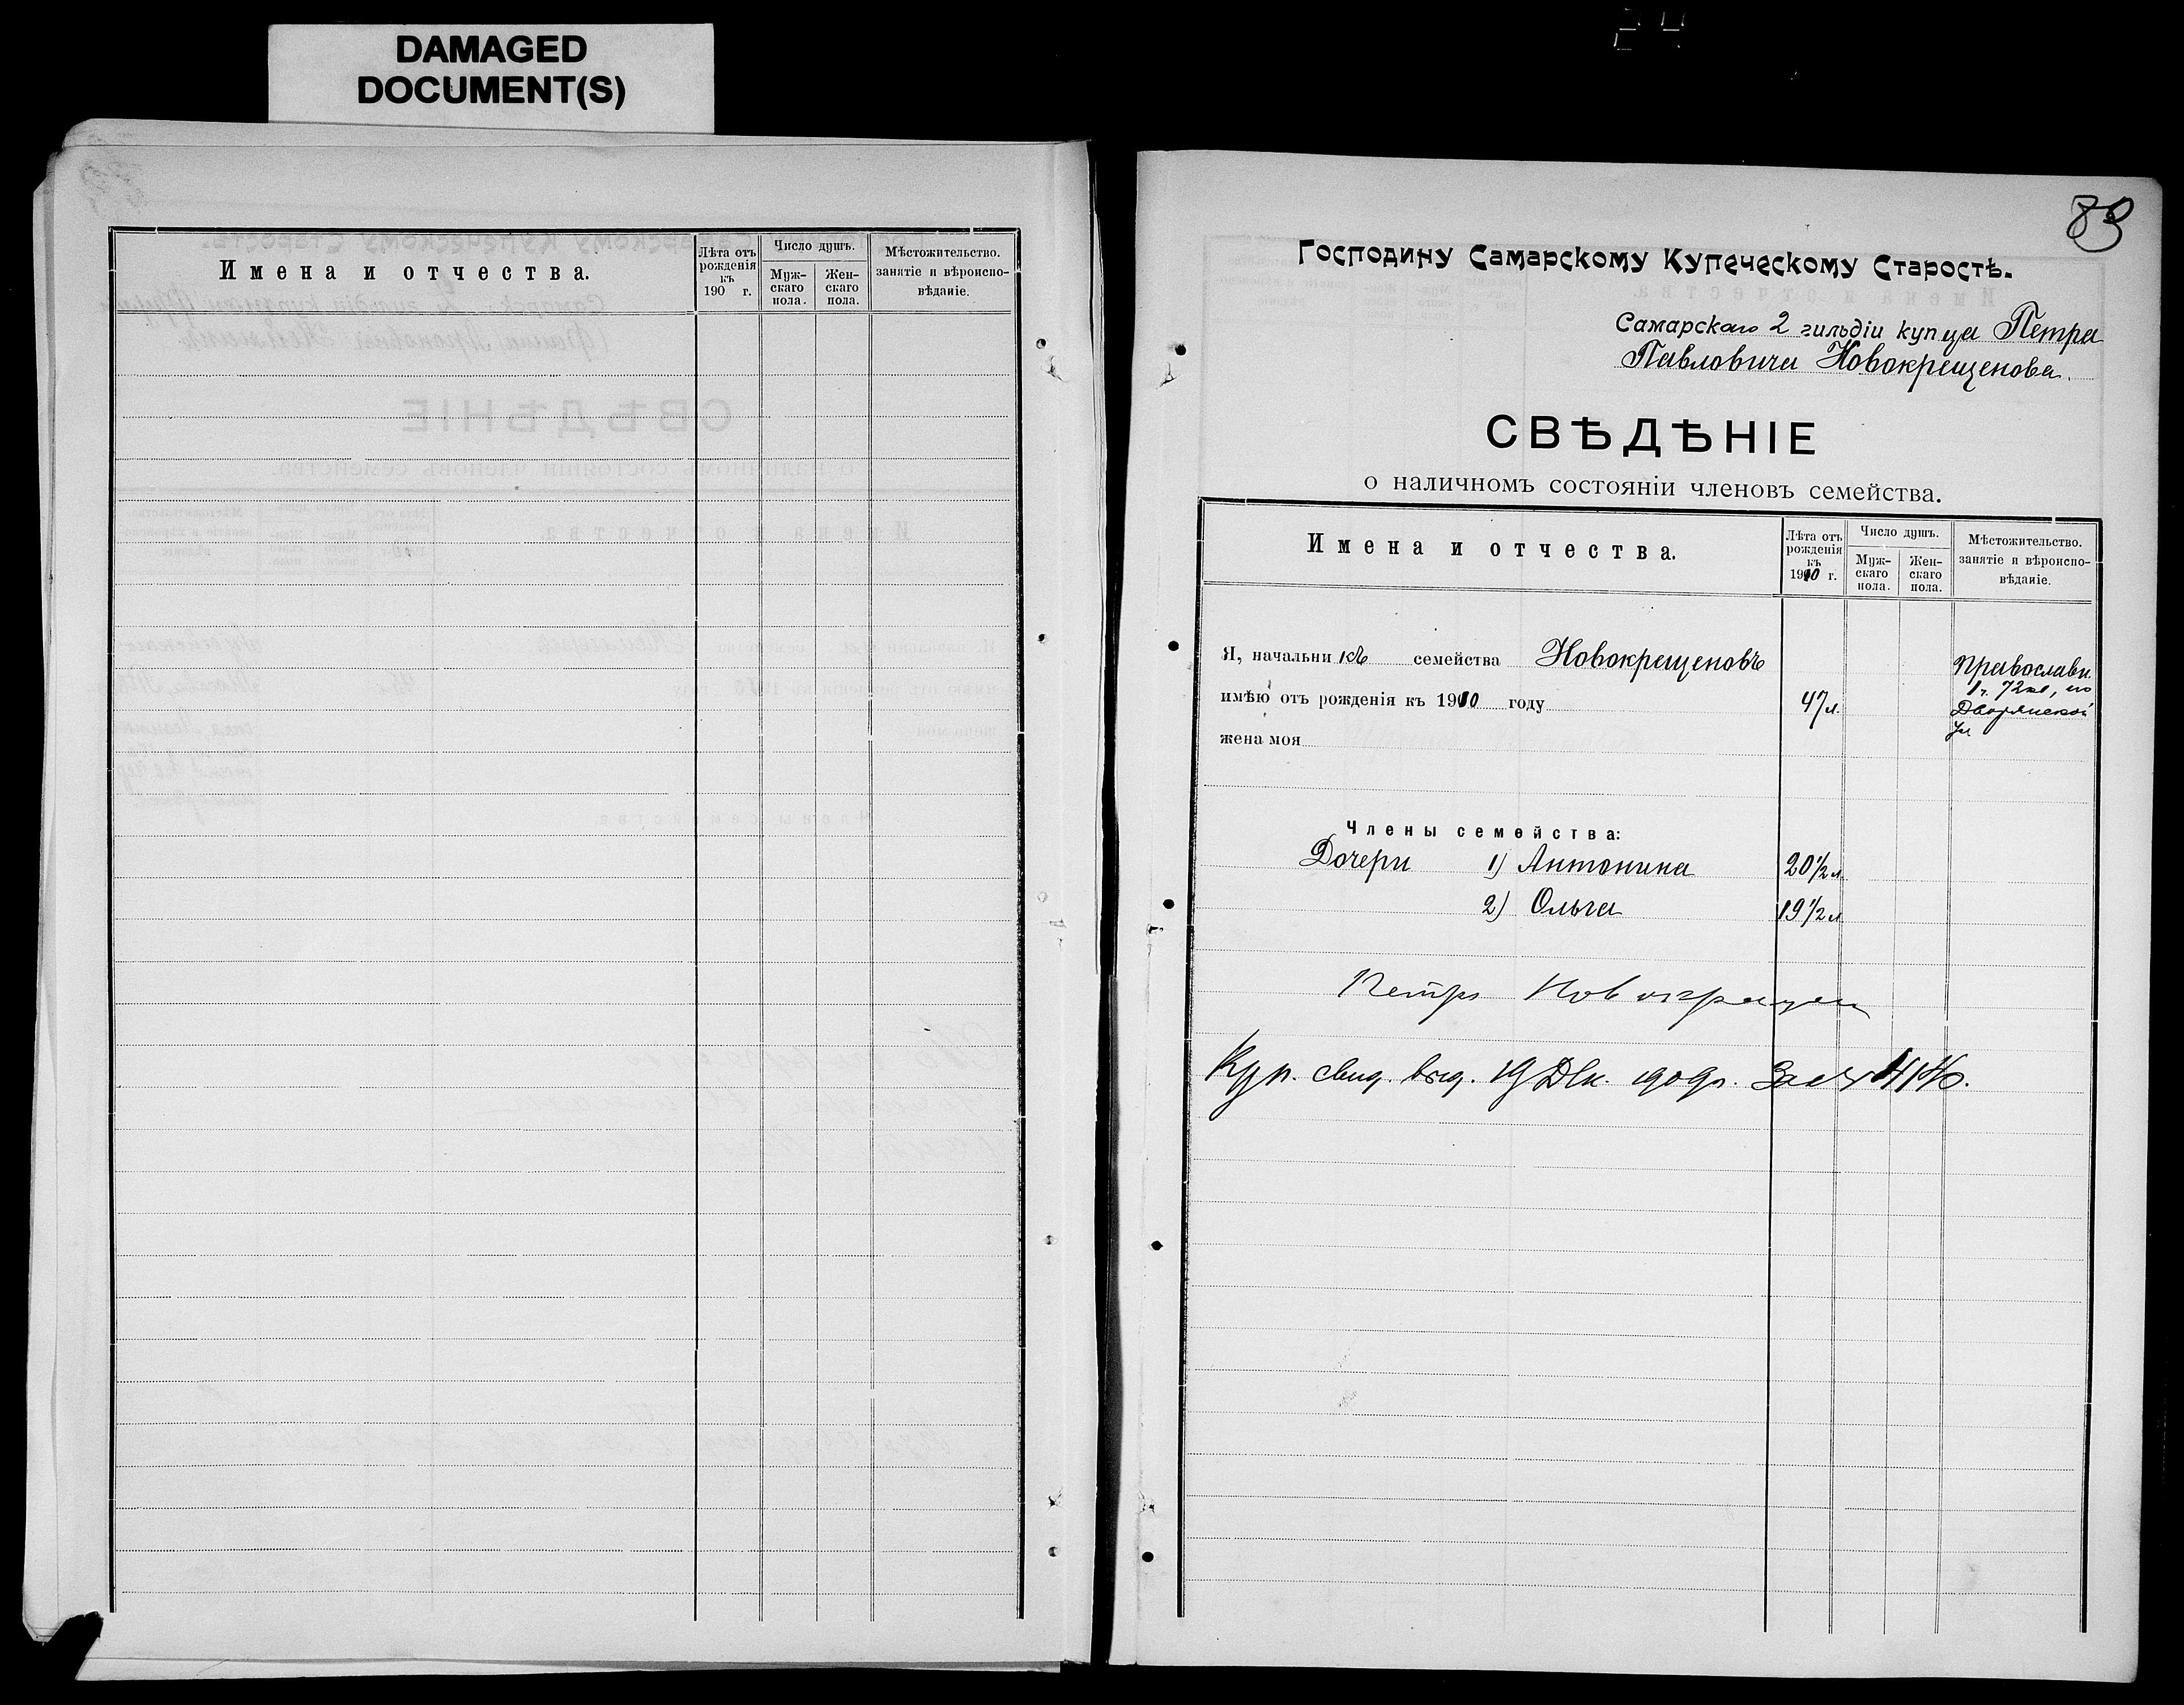 DAMAGED
DOCUMENT(S)
Имена и отчества.
Лѣта отъ рожденія къ 190 г.
Число душъ.
Муж-скаго пола.
Жен-скаго пола.
Мѣстожительство. занятіе и вѣроиспо-вѣданіе.
83
Господину Самарскому Купеческому Старостѣ.
Самарскаго 2 гильдіи купца Петра
Павловича Новокрещенова.
СВѢДѢНІЕ
о наличномъ состояніи членовъ семейства.
Имена и отчества.
Лѣта отъ рожденія къ 1910 г.
Число душъ.
Муж-скаго пола.
Жен-скаго пола.
Мѣстожительство. занятіе и вѣроиспо-вѣданіе.
Я, начальникъ семейства Новокрещеновъ
имѣю отъ рожденія къ 1910 году 47 л.
Православн.
1 ч. 72 кв, по
Дворянской
ул
жена моя
Члены семейства:
Дочери 1) Антонина 20 1/2 л.
2) Ольга 19 1/2 л
Петръ
Куп. свид. выд. 19 Дек. 1909 г. За №